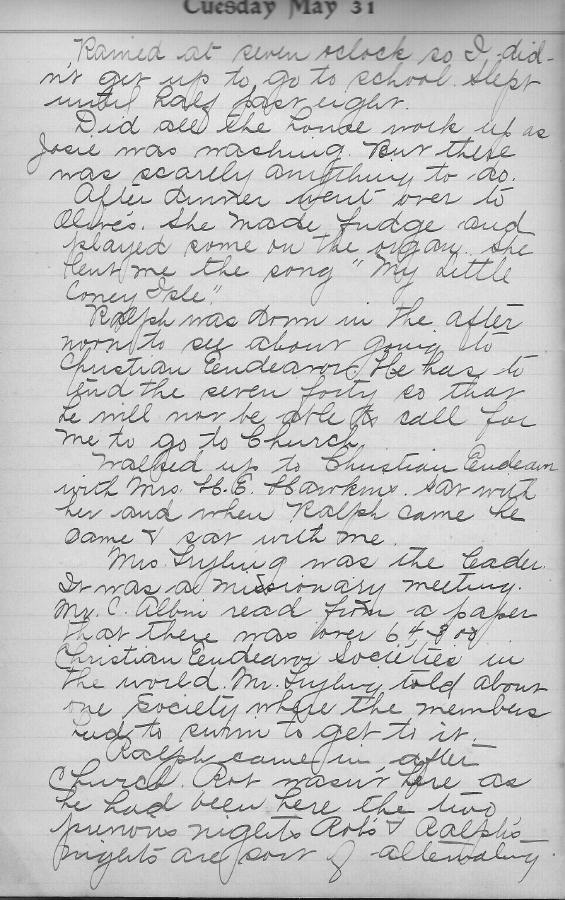 Tuesday May 31
Rained at seven oclock so I did-
n't get up to go to school. Slept
until half past eight.
Did all the house work up as
Josie was washing. But there
was scarely anything to do.
After dinner went over to
Olive's. She made fudge and
played some on the organ. She
lent me the song "My Little
Coney Isle".
Ralph was down in the after
noon to see about going to
Christian Endeavor. He has to
tend the seven forty so that
he will not be able to call for
me to go to Church.
Walked up to Christian Endeavor
with Mrs. H. E. Hawkins. Sat with
her and when Ralph came he
came & sat with me.
Mrs. was the leader.
It was a missionary meeting.
Mr. C. read from a paper
that there was over
Christian Endeavor Societies in
the world. Mr. told about
one Society where the members
had to swim to get to it.
Ralph came in after
Church. Rot wasn't here as
he had been here the two
previous nights Rot's & Ralph's
nights are sort of alternating.